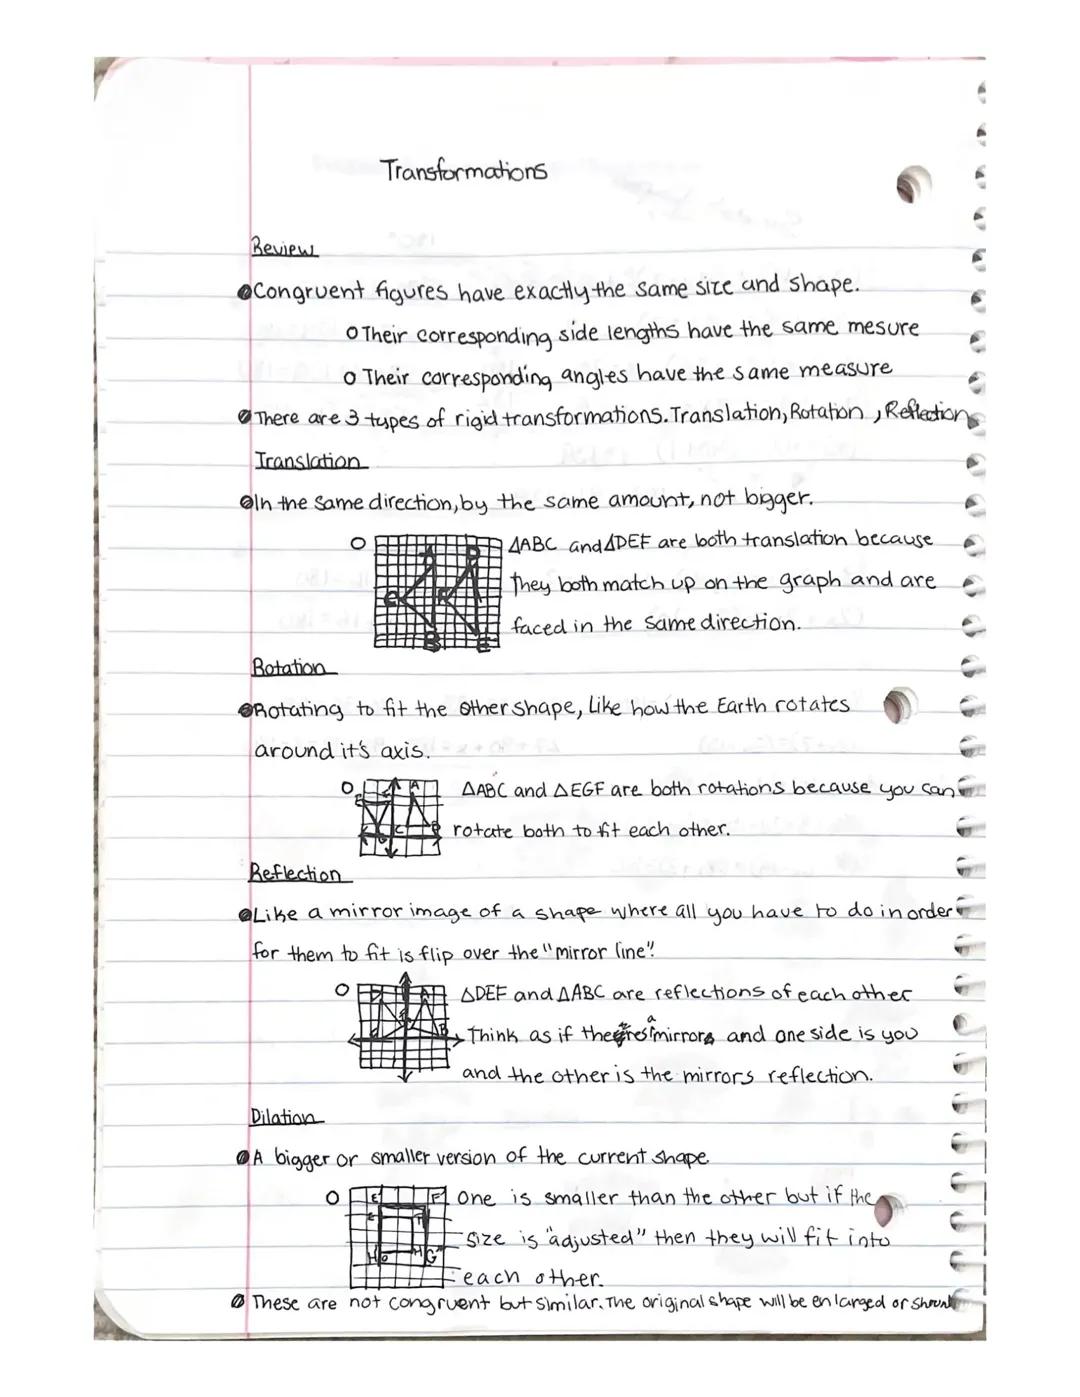 Transformations
Review
Congruent figures have exactly the same size and shape.
Their corresponding side lengths have the same mesure
Their corresponding angles have the same measure
There are 3 types of rigid transformations. Translation, Rotation, Reflection
Translation
In the same direction, by the same amount, not bigger.
△ABC and △DEF are both translation because
they both match up on the graph and are
faced in the same direction.
Rotation
Rotating to fit the other shape, Like how the Earth rotates
around it's axis.
△ABC and △EGF are both rotations because you can
rotate both to fit each other.
Reflection
Like a mirror image of a shape where all you have to do in order
for them to fit is flip over the "mirror line".
△DEF and △ABC are reflections of each other
Think as if a mirror and one side is you
and the other is the mirrors reflection.
Dilation
A bigger or smaller version of the current shape
E F One is smaller than the other but if the
size is "adjusted" then they will fit into
H G each other.
These are not congruent but similar. The original shape will be enlarged or shrunk